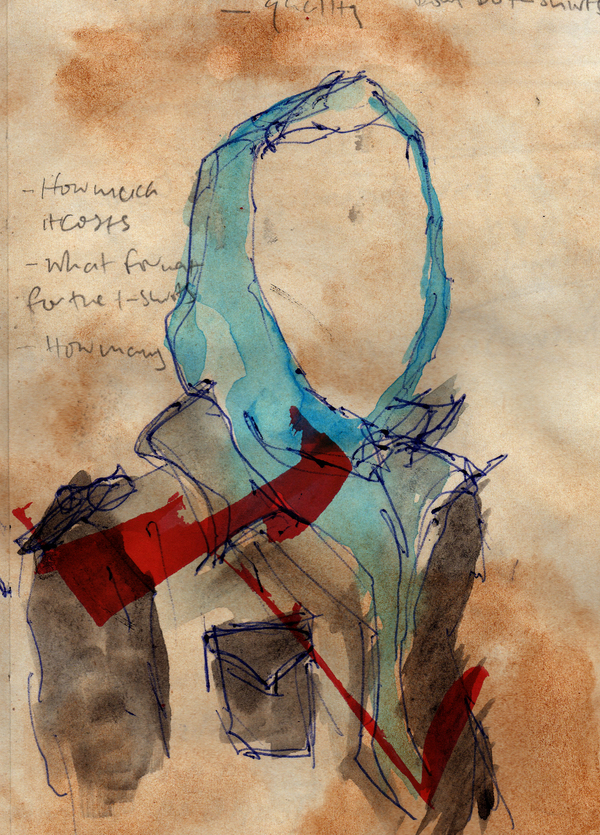 – quality
– How much
it costs
– What format
for the t-shirts
– How many